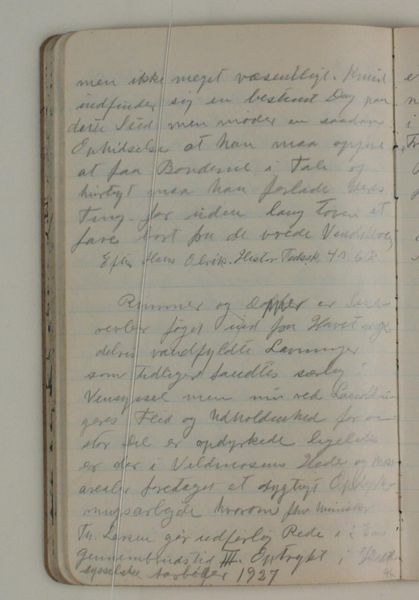 men ikke meget væsentligt. Knud
indfinder sig en bestemt Dag paa
dette Sted men møder en saadan
Ophidselse at han maa opgive
at faa Bønderne i Tale og
hurtigt maa han forlade deres
Ting for uden lang Toven at
fare bort fra de vrede Vendelboer
Efter Hans Olrik. Histor Tidssk.
Rimmer og Dopper er
revler føget ind fra Havet og
delvis vandfyldte Lavninger
som tidligere fandtes særlig i
Vensyssel men nu ved
geres Flid og Udholdenhed for en
stor Del er opdyrkede ligeledes
er der i Vildmosens Hede og
arealer foretaget et dygtigt
ningsarbejde hvorom fhv. Minister
Th. Larsen gør udførlig Rede i
gennembrudstid III. Optrykt i
sysselske Aarbøger 1927